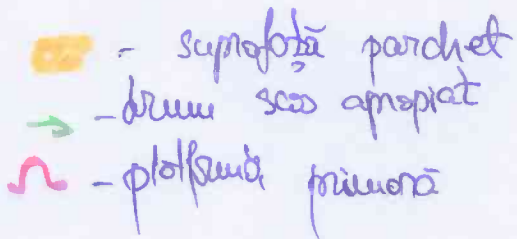 - suprafață parchet
- drum scos apropiat
- platformă primară